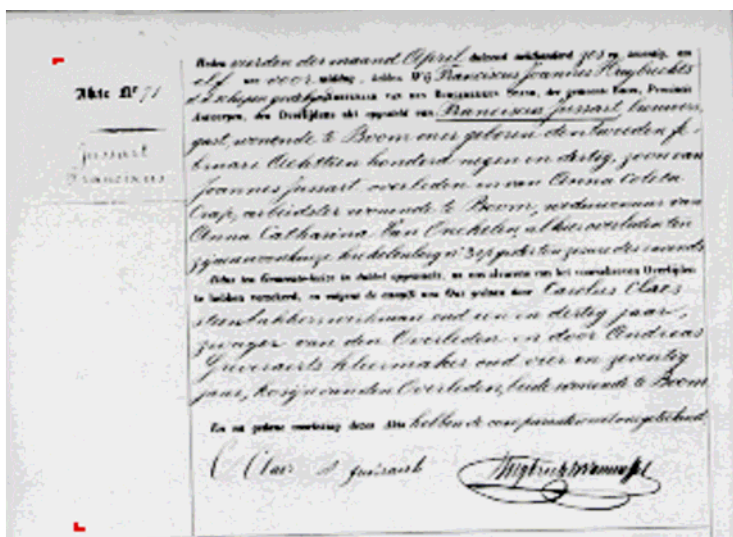 Akte Nr 71
Jussart
Franciscus
Heden vierden der maand April duizend achthonderd zes en zeventig, om
elf uur voor middag, hebben Wij Franciscus Joannes Huybrechts
schepen van den Burgerlijken Stand, der gemeente Boom, Provincie
Antwerpen, den Overlijdens akt opgesteld van Franciscus Jussart, brouwers
gast, wonende te Boom geboren den tweeden fe
bruari Achttien honderd negen en dertig, zoon van
Joannes Jussart overleden en van Anna Coleta
Crap, arbeidster wonende te Boom, weduwenaar van
Anna Catharina Van Onckelen, alhier overleden ten
zijnen woonhuize ten zes ure des avonds
Akte ten Gemeente-huize in dubbel opgemaakt, na ons alvorens van het voorschreven Overlijden
te hebben verzekerd, en volgens de aangift aan Ons gedaan door Carolus Claes
steenbakkerswerkman oud een en dertig jaar,
zwager van den Overleden en door Andreas
Gevaerts kleermaker oud vier en zeventig
jaar, kozijn van den Overleden, beide wonende te Boom
En na gedane voorlezing dezer Akte hebben de comparanten met ons geteekend
C Claes